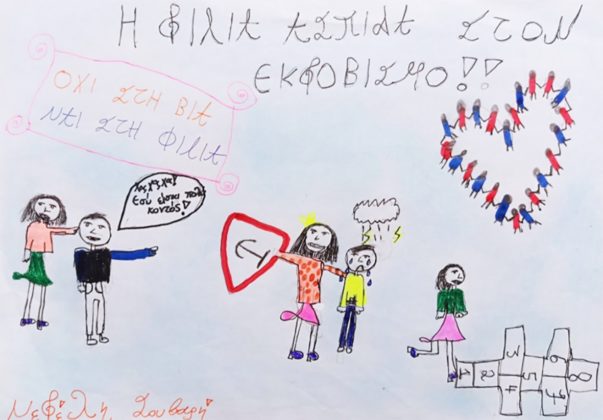 Η ΦΙΛΙΑ ΑΣΠΙΔΑ ΣΤΟΝ
ΕΚΦΟΒΙΣΜΟ!!
ΟΧΙ ΣΤΗ ΒΙΑ
ΝΑΙ ΣΤΗ ΦΙΛΙΑ
Χα, χα, χα!
Εσύ είσαι πολύ
κοντός!
3 6
1 2 5 8
4 7
Νεφέλη